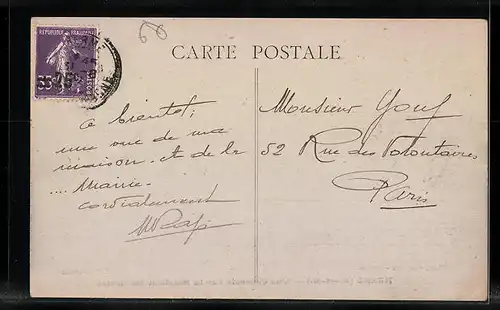 CARTE POSTALE
REPUBLIQUE FRANÇAISE
35
à bientôt;
une vue de ma
maison. et de la
.... Mairie.
cordialement
Monsieur
52 Rue des Volontaires
Paris